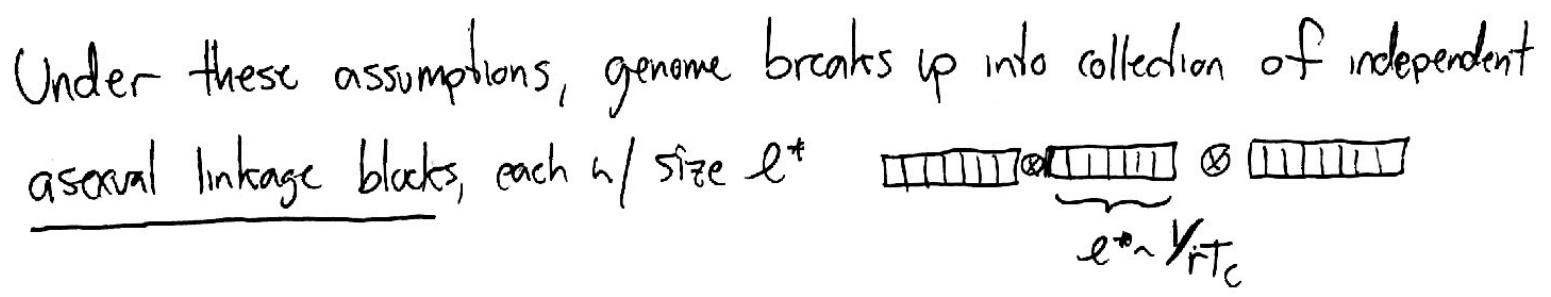 Under these assumptions, genome breaks up into collection of independent
asexual linkage blocks, each w/ size ℓ* ⊗ ⊗
ℓ* ~ 1/rTc